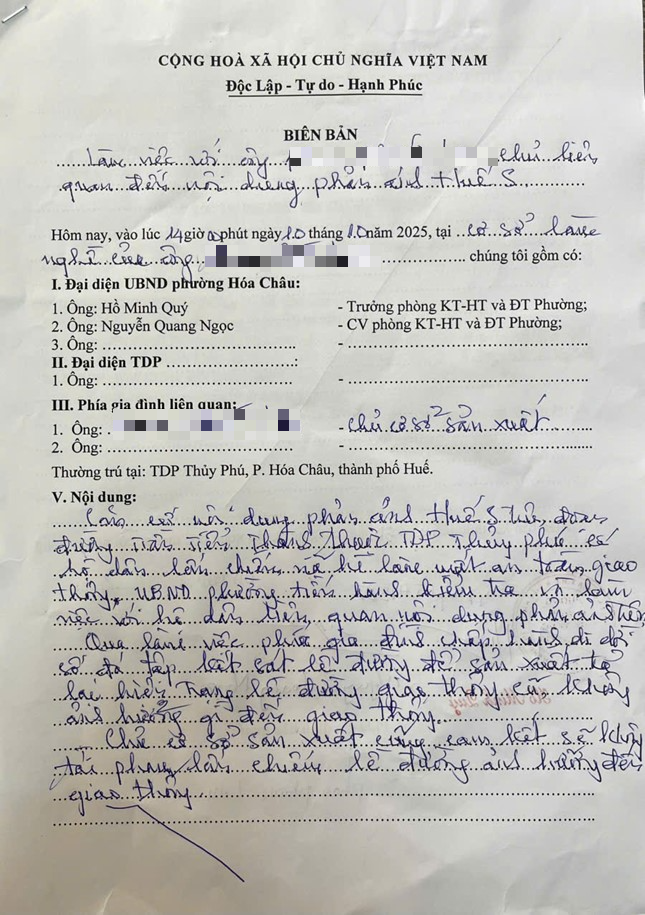 CỘNG HOÀ XÃ HỘI CHỦ NGHĨA VIỆT NAM
Độc Lập - Tự do - Hạnh Phúc
BIÊN BẢN
Làm việc với ông chủ liên
quan đến nội dung phản ánh Huế S
Hôm nay, vào lúc 14giờ00phút ngày10 tháng10năm 2025, tại cơ sở làm
nghề của ông chúng tôi gồm có:
I. Đại diện UBND phường Hóa Châu:
1. Ông: Hồ Minh Quý - Trưởng phòng KT-HT và ĐT Phường;
2. Ông: Nguyễn Quang Ngọc - CV phòng KT-HT và ĐT Phường;
3. Ông: -
II. Đại diện TDP :
1. Ông: -
III. Phía gia đình liên quan:
1. Ông: - Chủ cơ sở sản xuất
2. Ông: -
Thường trú tại: TDP Thủy Phú, P. Hóa Châu, thành phố Huế.
V. Nội dung:
Căn cứ nội dung phản ánh Huế S trên đoạn
đường Trần Tiễn Thành thuộc TDP Thủy Phú có
hộ dân lấn chiếm vỉa hè làm mất an toàn giao
thông, UBND phường tiến hành kiểm tra và làm
việc với hộ dân liên quan nội dung phản ánh trên
Qua làm việc phía gia đình chấp hành di dời
số đá tập kết sát lề đường để sản xuất trả
lại hiện trạng lề đường giao thông cũ không
ảnh hưởng gì đến giao thông.
Chủ cơ sở sản xuất cũng cam kết sẽ không
tái phạm lấn chiếm lề đường ảnh hưởng đến
giao thông